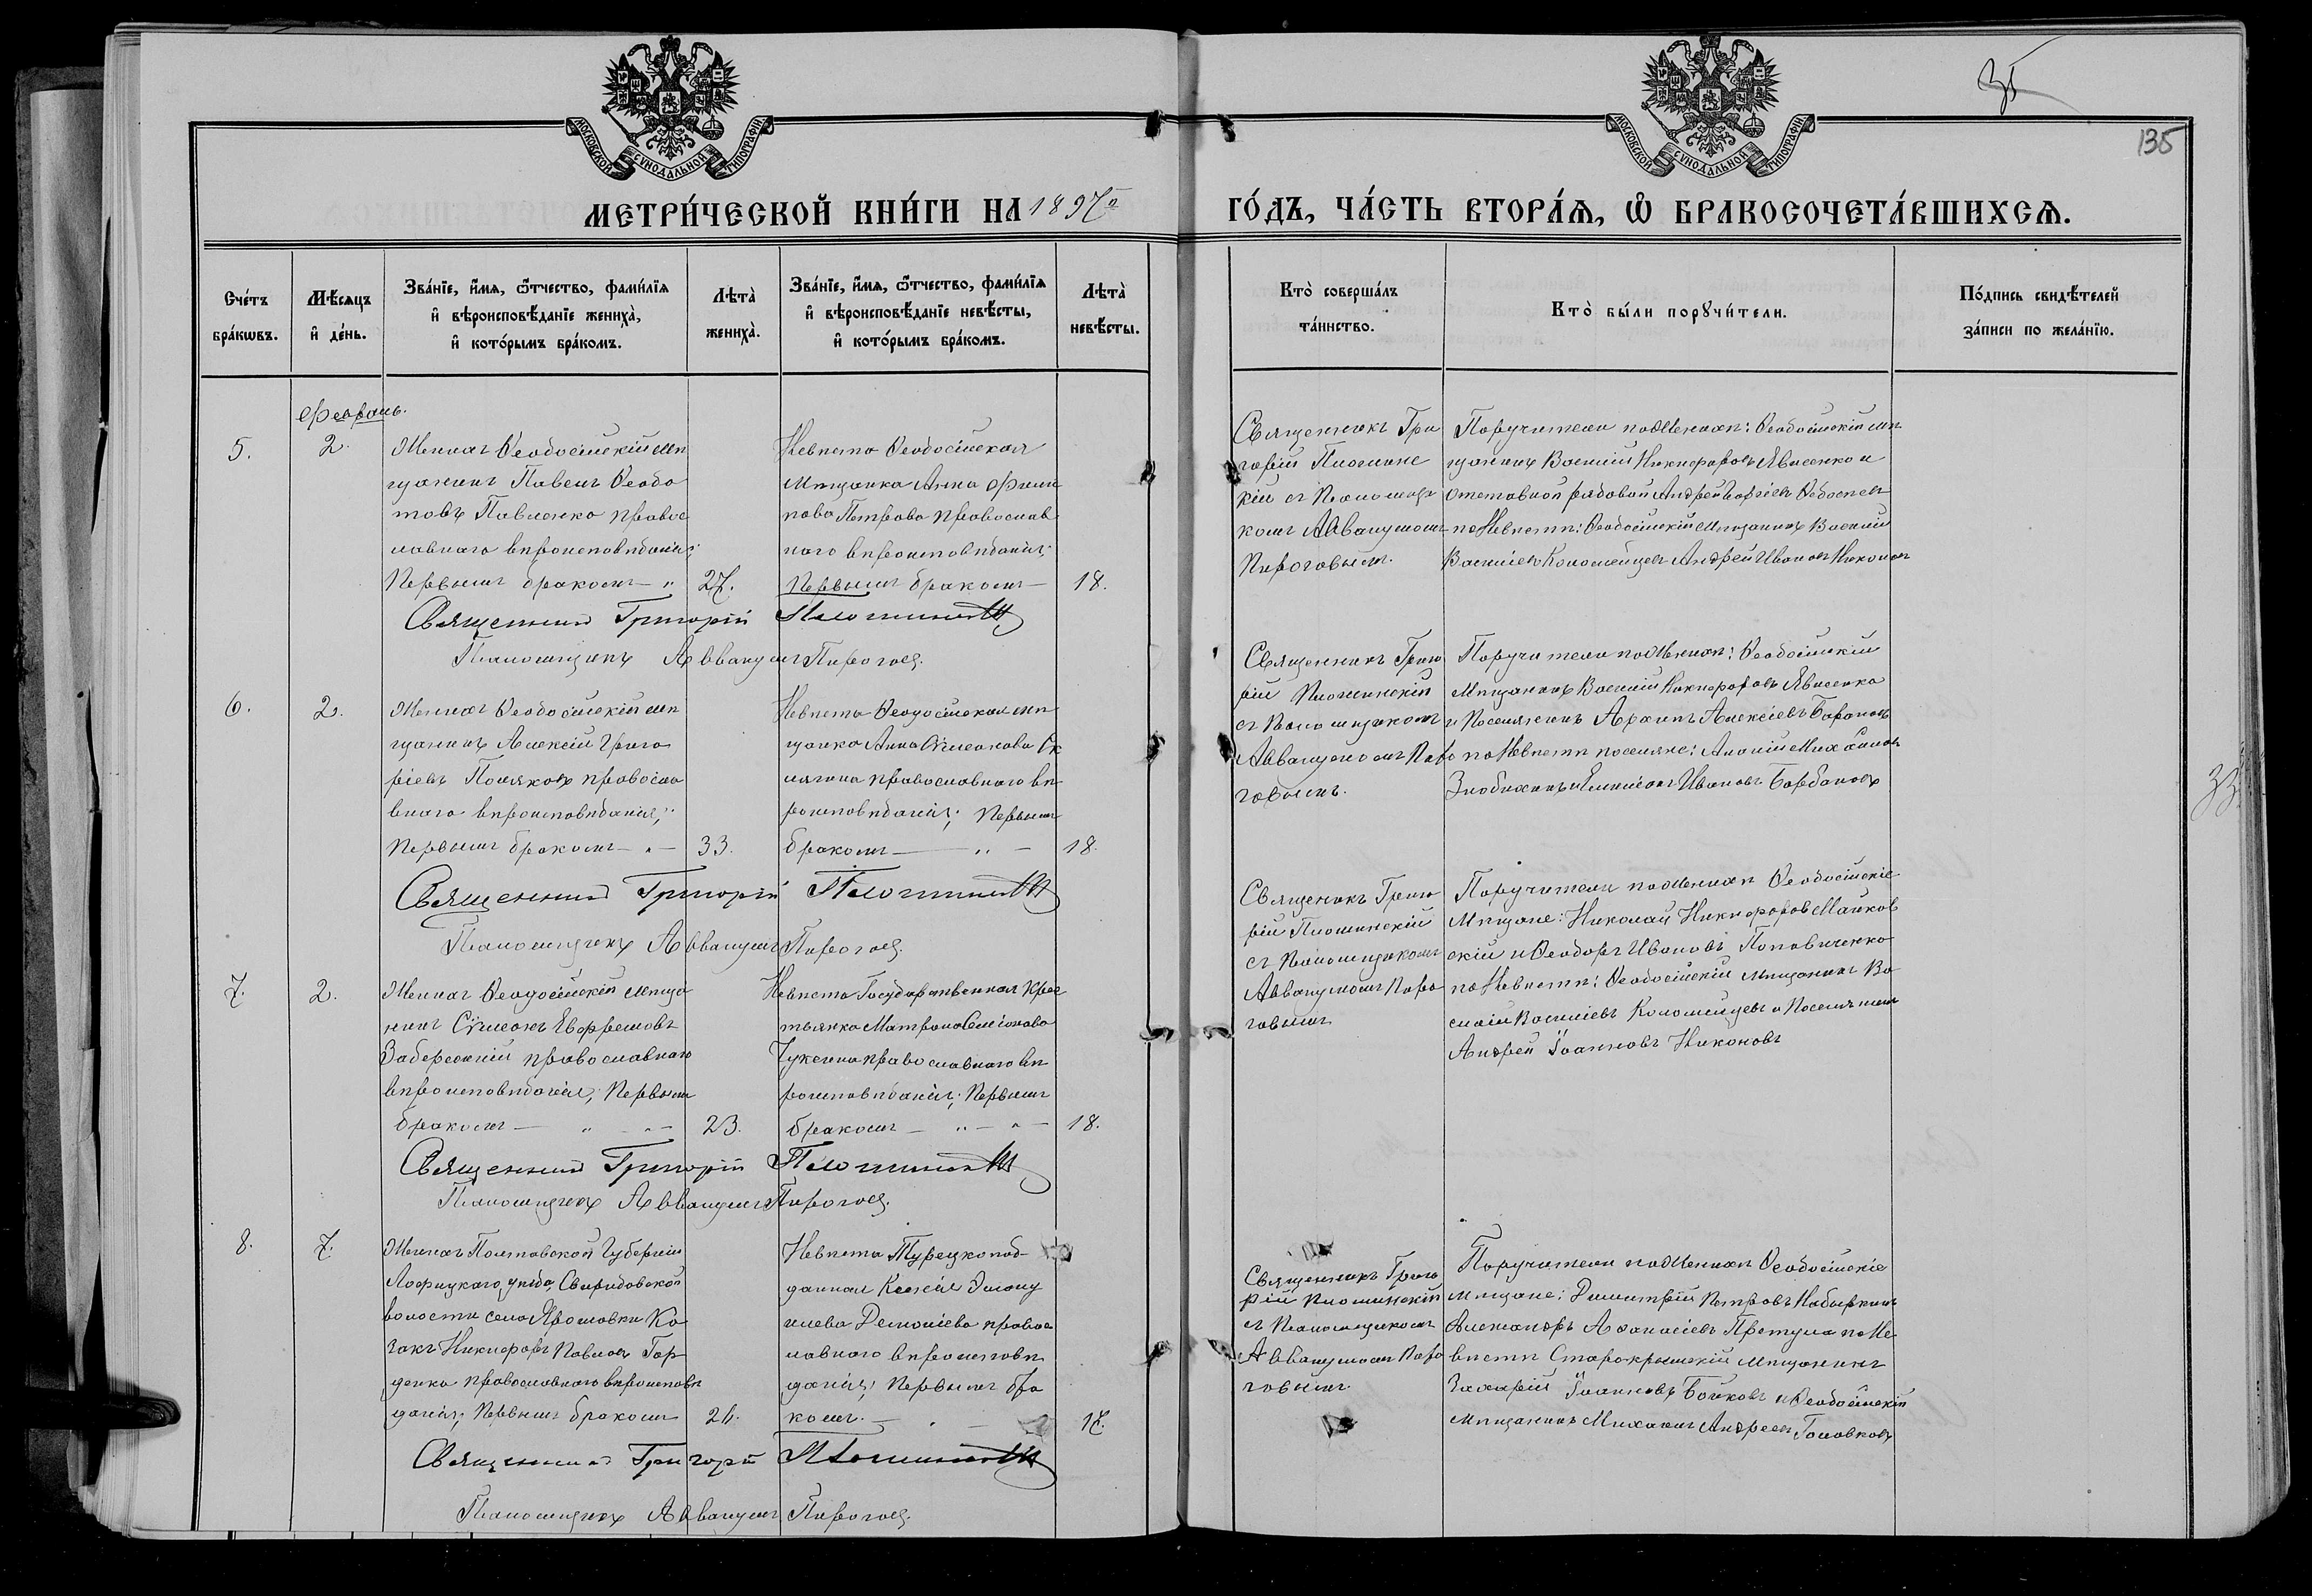 35
135
МОСКОВСКОЙ СУНОДАЛЬНОЙ ТИПОГРАФІИ
МОСКОВСКОЙ СУНОДАЛЬНОЙ ТИПОГРАФІИ
МЕТРИ́ЧЕСКОЙ КНИ́ГИ НА 1897й ГО́ДЪ, ЧА́СТЬ ВТОРА́Ѧ, Ѽ БРАКОСОЧЕТА́ВШИХСѦ.
Сче́тъ
бра́кѡвъ.
Мѣ́сяцъ
и҆ де́нь.
Зва́нїе, и҆́мя, ѻ҆́тчество, фами́лїя
и҆ вѣроисповѣ́данїе жениха̀,
и҆ кото́рымъ бра́комъ.
Лѣта̀
жениха̀.
Зва́нїе, и҆́мя, ѻ҆́тчество, фами́лїя
и҆ вѣроисповѣ́данїе невѣ́сты,
и҆ кото́рымъ бра́комъ.
Лѣта̀
невѣ́сты.
Кто̀ соверша́лъ
та́инство.
Кто̀ бы́ли порꙋчи́тели.
По́дпись свидѣ́телей
за́писи по жела́нїю.
5.
2.
Женихъ Ѳеодосійскій мѣ
щанинъ Павелъ Ѳеодо
товъ Павленко правос
лавнаго вѣроисповѣданія;
первымъ бракомъ — „
27.
Невѣста Ѳеодосійская
Мѣщанка Анна Филип
пова Петрова православ
наго вѣроисповѣданія;
первымъ бракомъ —
18.
Священникъ Гри
горій Пломинс
кій съ Псаломщи
комъ Аввакумомъ
Пироговымъ.
Поручители по Женихѣ: Ѳеодосійскій мѣ
щанинъ Василій Никифоровъ Явленко и
отставной рядовой Андрей
по Невѣстѣ: Ѳеодосійскій Мѣщанинъ Василій
Василіевъ Коломейцевъ Андрей Ивановъ Никоновъ
Священникъ Григорій
Псаломщикъ Аввакумъ Пироговъ.
6.
2.
Женихъ Ѳеодосійскій мѣ
щанинъ Алексій Григо
ріевъ Поляковъ правосла
внаго вѣроисповѣданія;
первымъ бракомъ — „ —
33.
Невѣста Ѳеодосійская мѣ
щанка Анна Сѵмеонова Ск
лягина православнаго вѣ
роисповѣданія; первымъ
бракомъ — „ —
18.
Священникъ Григо
рій Пломинскій
съ Псаломщикомъ
Аввакумомъ Пиро
говымъ.
Поручители по Женихѣ: Ѳеодосійскій
Мѣщанинъ Василій Никифоровъ Явленко
и Поселянинъ Архипъ Алексіевъ Барановъ
по Невѣстѣ поселяне: Ананій Михаиловъ
Ивановъ
Священникъ Григорій
Псаломщикъ Аввакумъ Пироговъ.
7.
2.
Женихъ Ѳеодосійскій Мѣща
нинъ Сѵмеонъ Евфремовъ
православнаго
вѣроисповѣданія; первымъ
бракомъ — „ — „ —
23.
Невѣста Государственная Крес
тьянка Матрона Симонова
православнаго вѣ
роисповѣданія; первымъ
бракомъ — „ — „ —
18.
Священникъ Григо
рій Пломинскій
съ Псаломщикомъ
Аввакумомъ Пиро
говымъ
Поручители по Женихѣ Ѳеодосійскіе
Мѣщане: Николай Никифоровъ Майков
скій и Ѳеодоръ Ивановъ Поповиченко
по Невѣстѣ: Ѳеодосійскій Мѣщанинъ Ва
силій Василіевъ Коломейцевъ и Поселянинъ
Андрей Іоанновъ Никоновъ
Священникъ Григорій
Псаломщикъ Аввакумъ Пироговъ.
8.
7.
Женихъ Полтавской Губерніи
Лохвицкаго уѣзда, Свиридовской
волости села Яхрошовки Ка
закъ Никифоръ Павловъ Гор
денко православнаго вѣроисповѣ
данія; первымъ бракомъ
Невѣста Турецкоподданная
православнаго вѣроисповѣ
данія; первымъ бра
комъ. —
17.
Священникъ Григо
рій Пломинскій
съ Псаломщикомъ
Аввакумомъ Пиро
говымъ.
Поручители по Женихѣ Ѳеодосійскіе
мѣщане: Димитрій Петровъ
Александръ Аѳанасіевъ Претула по Не
вѣстѣ Старокрымскій мѣщанинъ
Захарій Іоанновъ Бойковъ и Ѳеодосійскій
мѣщанинъ Михаилъ Андреевъ Головковъ
Священникъ Григорій
Псаломщикъ Аввакумъ Пироговъ.